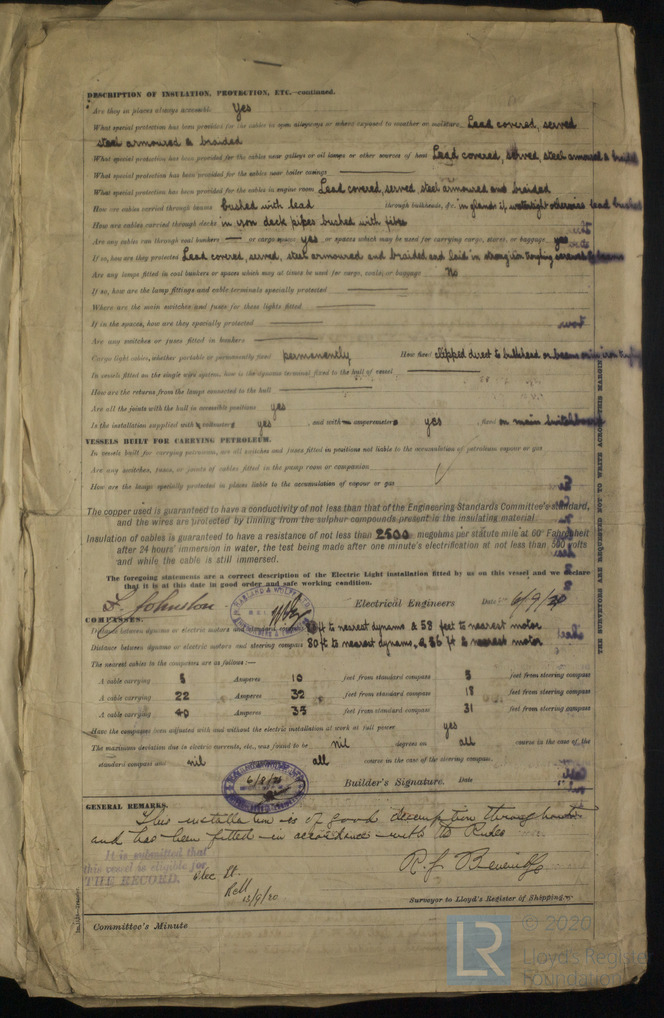 DESCRIPTION OF INSULATION, PROTECTION, ETC.—continued.
Are they in places always accessible Yes
What special protection has been provided for the cables in open alleyways or where exposed to weather or moisture Lead covered, served
steel armoured & braided
What special protection has been provided for the cables near galleys or oil lamps or other sources of heat Lead covered, served, steel armoured & braided
What special protection has been provided for the cables near boiler casings
What special protection has been provided for the cables in engine room Lead covered, served steel armoured and braided
How are cables carried through beams bushed with lead through bulkheads, &c. in glands if watertight otherwise lead bushed
How are cables carried through decks in iron deck pipes bushed with fibre
Are any cables run through coal bunkers — or cargo spaces yes, or spaces which may be used for carrying cargo, stores, or baggage yes
If so, how are they protected Lead covered, served, steel armoured and braided and laid in strong iron troughing screwed to beams
Are any lamps fitted in coal bunkers or spaces which may at times be used for cargo, coals, or baggage No
If so, how are the lamp fittings and cable terminals specially protected
Where are the main switches and fuses for these lights fitted
If in the spaces, how are they specially protected
Are any switches or fuses fitted in bunkers
Cargo light cables, whether portable or permanently fixed permanently How fixed clipped direct to bulkhead or beams or in iron troughing
In vessels fitted on the single wire system, how is the dynamo terminal fixed to the hull of vessel
How are the returns from the lamps connected to the hull
Are all the joints with the hull in accessible positions yes
Is the installation supplied with voltmeters yes, and with amperemeters yes, fixed on main switchboard
VESSELS BUILT FOR CARRYING PETROLEUM.
In vessels built for carrying petroleum, are all switches and fuses fitted in positions not liable to the accumulation of petroleum vapour or gas
Are any switches, fuses, or joints of cables fitted in the pump room or companion
How are the lamps specially protected in places liable to the accumulation of vapour or gas
The copper used is guaranteed to have a conductivity of not less than that of the Engineering Standards Committee's standard,
and the wires are protected by tinning from the sulphur compounds present in the insulating material.
Insulation of cables is guaranteed to have a resistance of not less than 2500 megohms per statute mile at 60° Fahrenheit
after 24 hours' immersion in water, the test being made after one minute's electrification at not less than 500 volts
and while the cable is still immersed.
The foregoing statements are a correct description of the Electric Light installation fitted by us on this vessel and we declare
that it is at this date in good order and safe working condition.
Johnston HARLAND & WOLFF Electrical Engineers Date 6/9/20
COMPASSES.
Distance between dynamo or electric motors and standard compass ft to nearest dynamo & 58 feet to nearest motor
Distance between dynamo or electric motors and steering compass 80 ft to nearest dynamo, & 36 ft to nearest motor
The nearest cables to the compasses are as follows:—
A cable carrying 5 Amperes 10 feet from standard compass 5 feet from steering compass
A cable carrying 22 Amperes 32 feet from standard compass 18 feet from steering compass
A cable carrying 40 Amperes 35 feet from standard compass 31 feet from steering compass
Have the compasses been adjusted with and without the electric installation at work at full power yes
The maximum deviation due to electric currents, etc., was found to be nil degrees on all course in the case of the
standard compass and nil all course in the case of the steering compass.
Builder's Signature. Date
GENERAL REMARKS.
This installation is of good description throughout
and has been fitted in accordance with the Rules
It is submitted that
this vessel is eligible for
THE RECORD. Elec Lt.
13/9/20
R. J. Beveridge
Surveyor to Lloyd's Register of Shipping.
Committee's Minute
THE SURVEYORS ARE REQUESTED NOT TO WRITE ACROSS THIS MARGIN
LR
© 2020
Lloyd's Register
Foundation